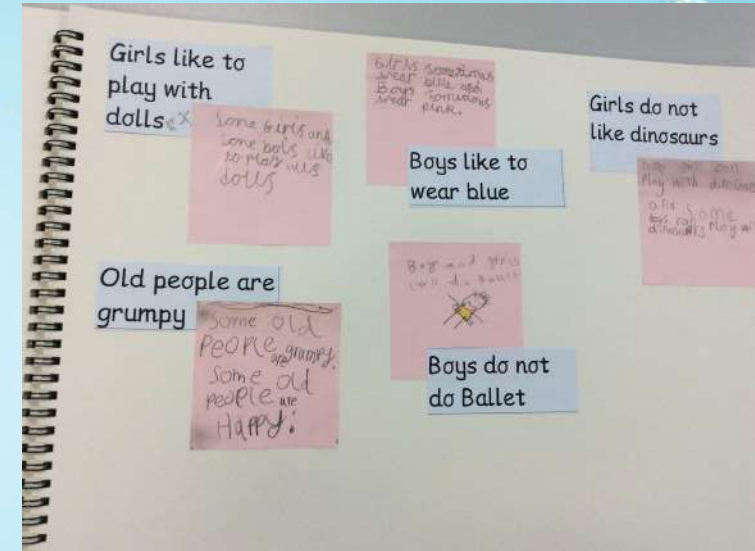 Girls like to
play with
dolls
Some Girls and
Some bois like
to play
dolls
Girls sometimes
wear blue and
Boys sometimes
wear pink.
Boys like to
wear blue
Girls do not
like dinosaurs
Play with
and some
dinosaurs Play wi
Old people are
grumpy
Some old
PeoPle are grumpy.
Some old
people are
HaPPy.
Boys and girls
can do Ballet
Boys do not
do Ballet